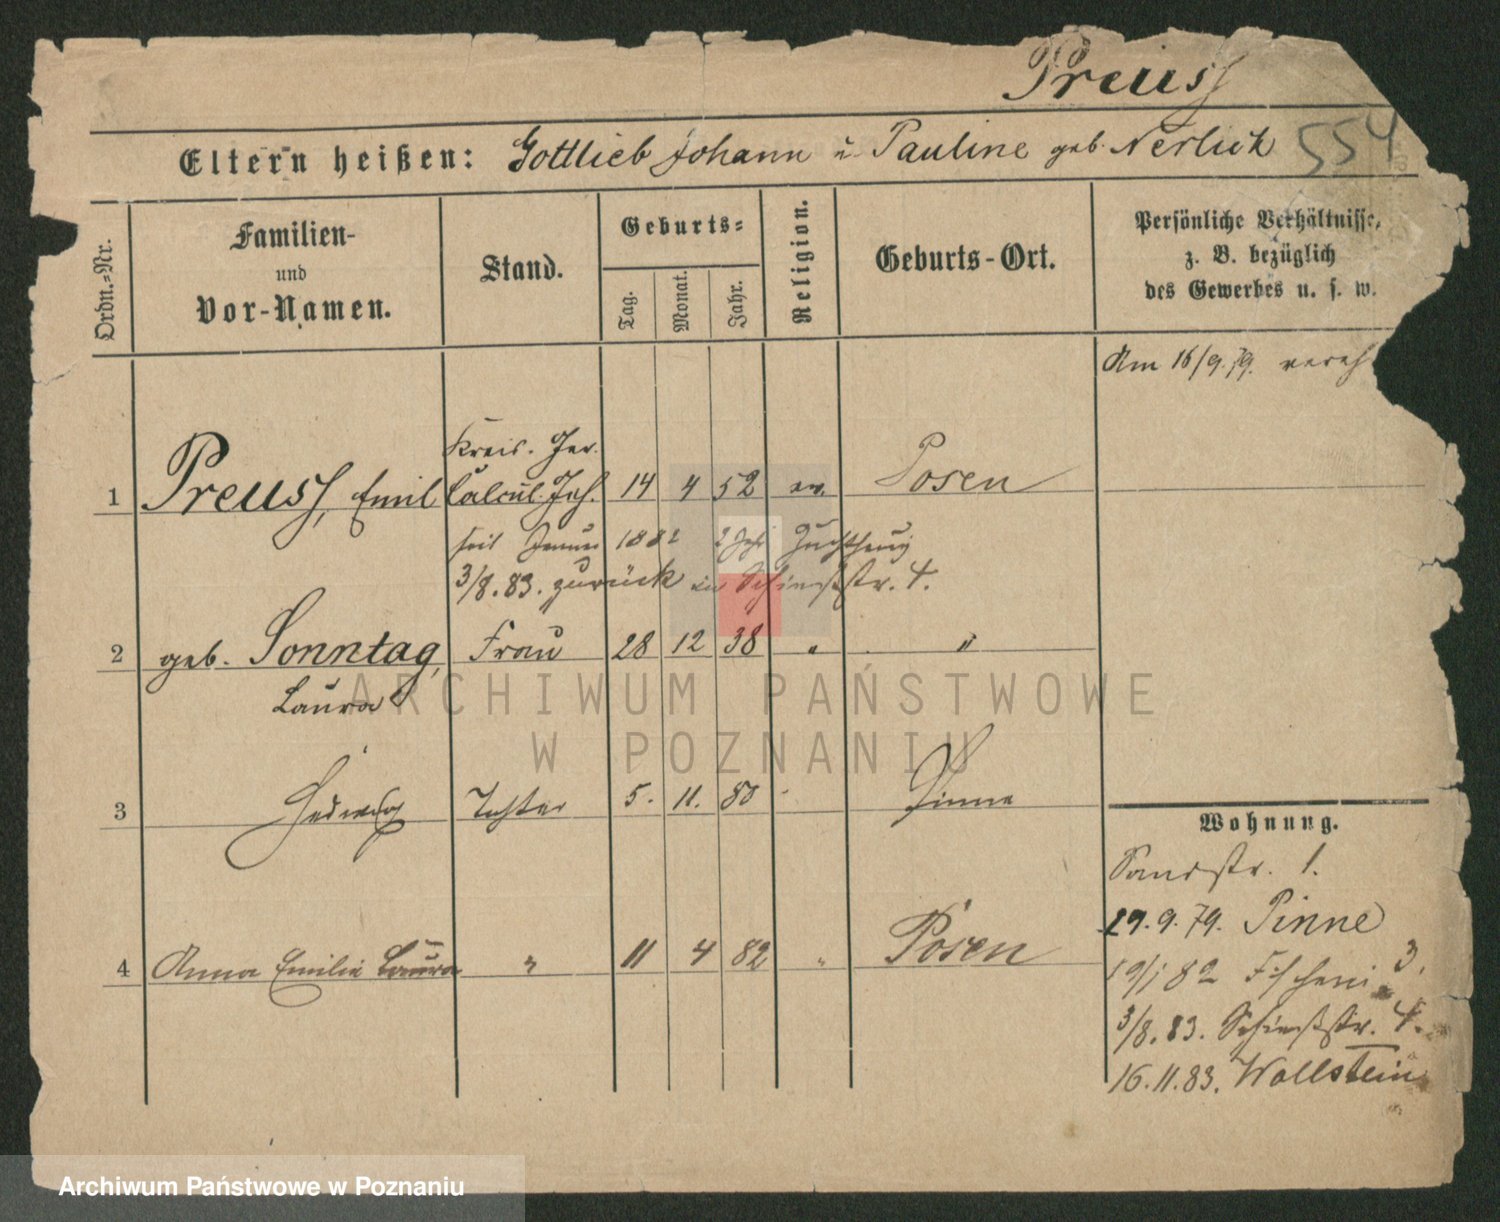 Preuss
Eltern heißen: Gottlieb Johann u. Pauline geb. Nerlich 554
Ordn.-Nr.
Familien-
und
Vor-Namen.
Stand.
Geburts-
Tag.
Monat.
Jahr.
Religion.
Geburts-Ort.
Persönliche Verhältnisse,
z. B. bezüglich
des Gewerbes u. s. w.
Am 16/9.79. vereh
Kreis. Ger.
1 Preuss, Emil Calcul. 14 4 52 ev. Posen
seit Januar 1882 2 Jahr Zuchthaus
3/8.83. zurück in Schießstr. 4.
2 geb. Sonntag, Frau 28 12 38 " "
Laura
3 Hedwig Tochter 5. 11. 80 Pinne
4 Anna Emilie Laura " 11 4 82 " Posen
Wohnung.
Sandstr. 1.
19.9.79. Pinne
19/1 82 Fischerei 3.
3/8.83. Schießstr. 4.
16.11.83. Wollstein
ARCHIWUM PAŃSTWOWE
W POZNANIU
Archiwum Państwowe w Poznaniu